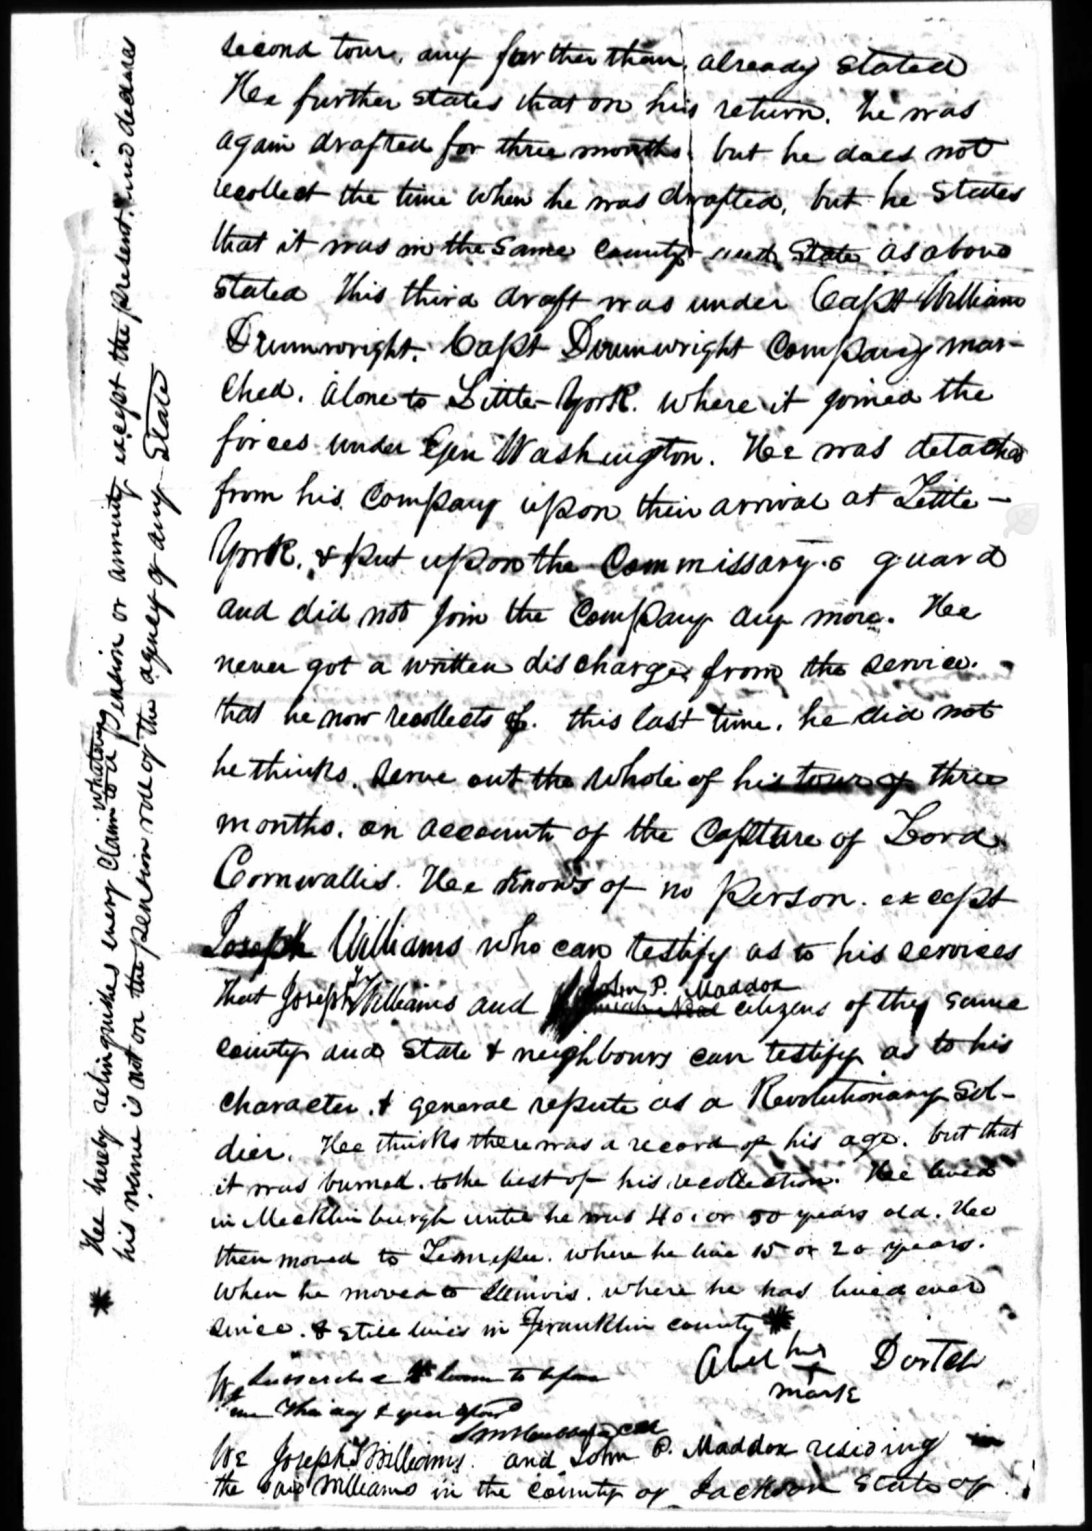 second tour, any farther than already stated
Hee further states that on his return, he was
again drafted for three months, but he does not
recollect the time when he was drafted, but he states
that it was in the same county and State as above
stated This third draft was under Capt William
Drumwright. Capt Drumwright Company mar-
ched. alone to Little-York. where it joined the
forces under Gen Washington. Hee was detached
from his Company upon their arrival at Little-
York. & put upon the Commissary's guard
and did not join the Company any more. Hee
never got a written discharge from the service.
that he now recollects of. this last time. he did not
he thinks. serve out the whole of his tour of three
months. on account of the Capture of Lord
Cornwallis. Hee knows of no person. except
Joseph Williams who can testify as to his services
that Joseph T Williams and John P. Maddox citizens of the same
county and State & neighbours can testify as to his
character. & general repute as a Revolutionary Sol-
dier. Hee thinks there was a record of his age. but that
it was burned. to the best of his recollection. Hee lived
in Mecklinburgh until he was 40. or 50 years old. Hee
then moved to Tennessee. where he live 15 or 20 years.
When he moved to Illinois. where he has lived ever
since. & still lives in Franklin county *
Abel his X mark Dortch
sworn to before
me this day & year
We Joseph T Williams. and John P. Maddox residing in
the said Williams in the county of Jackson State of
* Hee hereby relinquishes every claim whatever to a pension or annuity except the present, and declares
his name is not on the pension role of the agency of any State